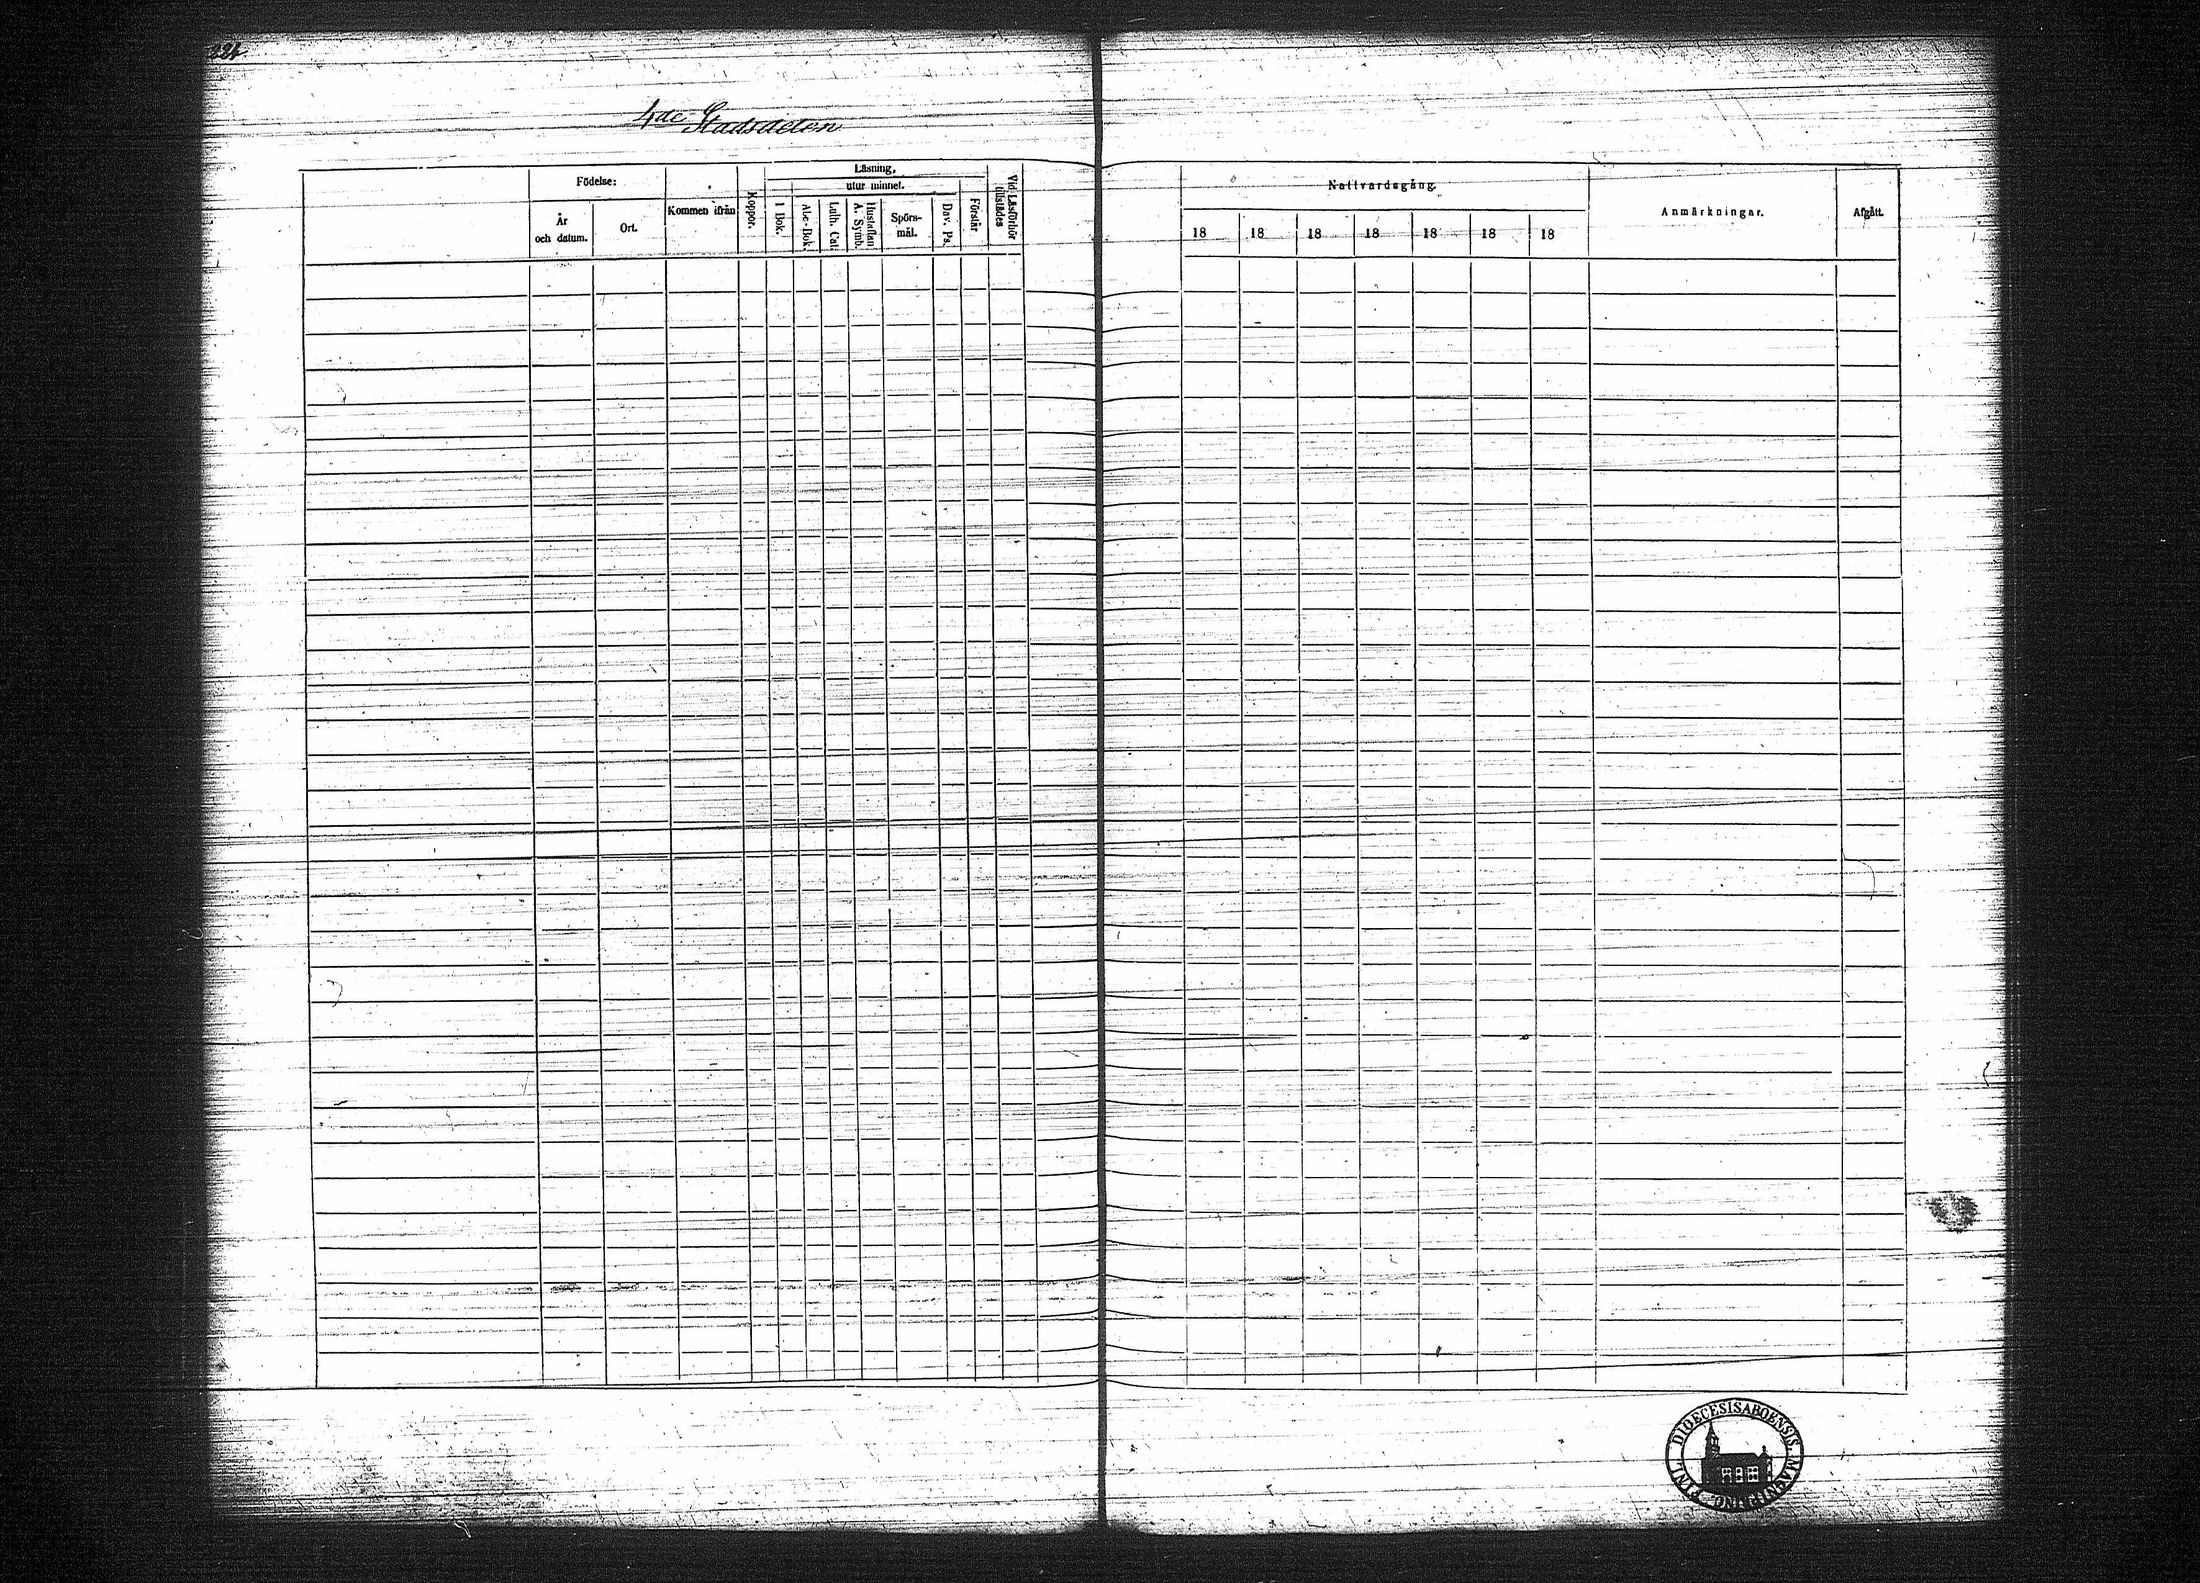 4de Stadsdelen
Födelse:
År
och datum.
Ort.
Kommen ifrån
Koppor.
Läsning,
utur minnet.
I Bok.
Abc-Bok.
Luth. Cat.
Hustaflan
A. Symb.
Spörs-
mål.
Dav. Ps.
Förstår
Vid Läsförhör
tillstädes
Nattvardsgång.
18 18 18 18 18 18 18
Anmärkningar.
Afgått.
DIOECESIS ABOENSIS